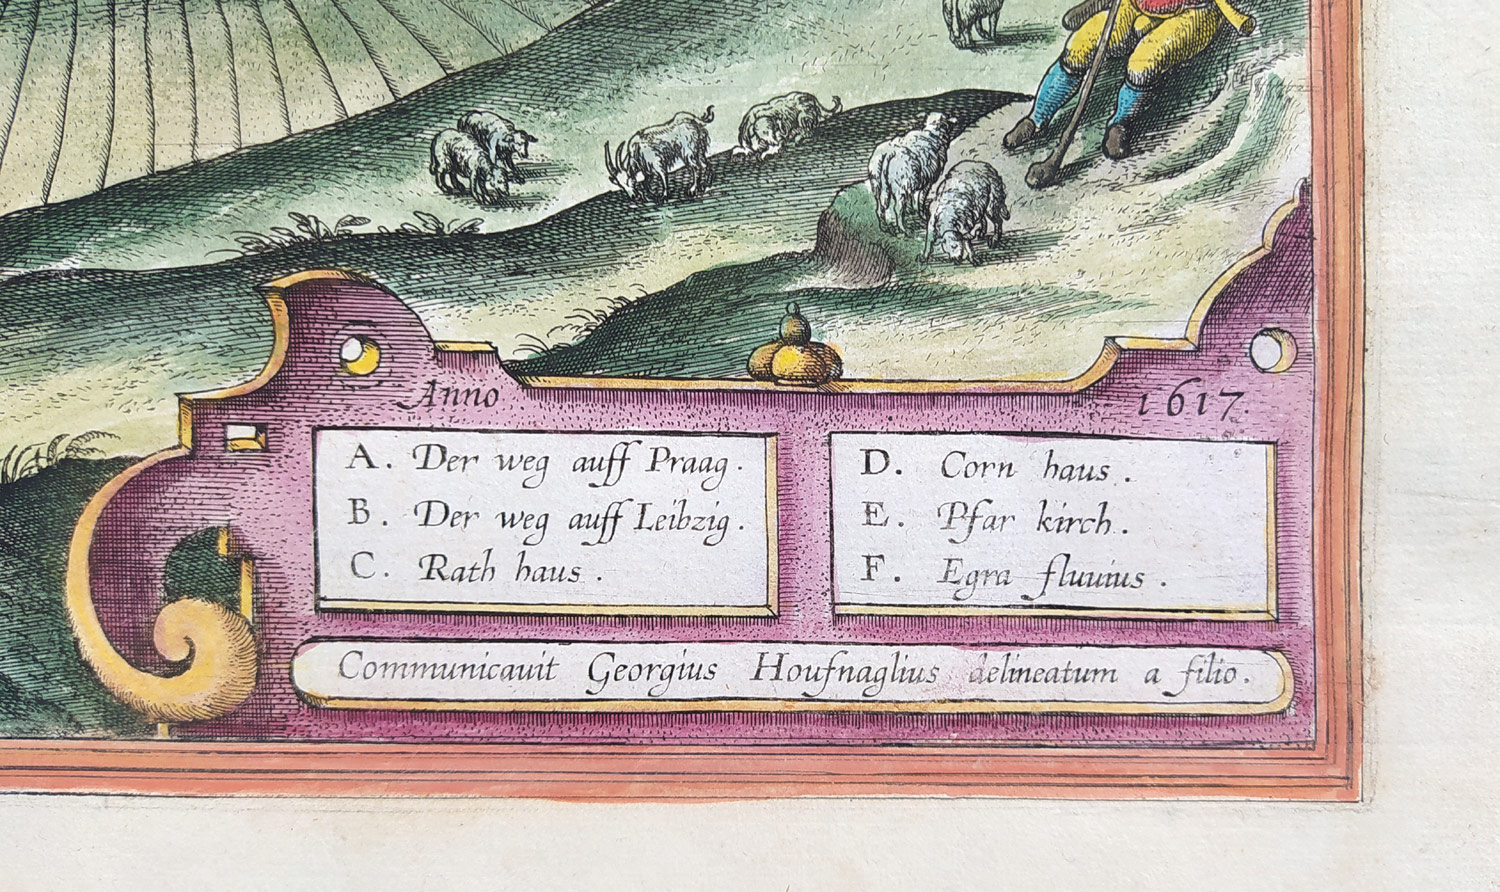 Anno 1617.
A. Der weg auff Praag.
B. Der weg auff Leibzig.
C. Rath haus.
D. Corn haus.
E. Pfar kirch.
F. Egra fluuius.
Communicauit Georgius Houfnaglius delineatum a filio.